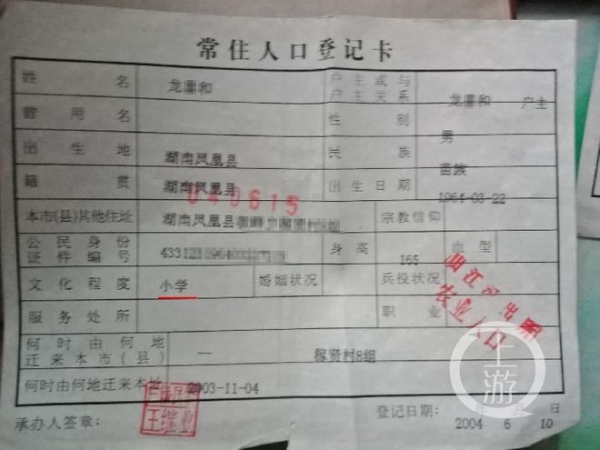 常住人口登记卡
姓名 龙灞和 户主或与户主关系 龙灞和 户主
曾用名 性别 男
出生地 湖南凤凰县 民族 苗族
籍贯 湖南凤凰县 出生日期 1964-03-22
040615
本市(县)其他住址 湖南凤凰县 宗教信仰
公民身份证件编号 身高 165 血型
文化程度 小学 婚姻状况 兵役状况
服务处所 职业
农业人口
何时由何地迁来本市(县) — 稼贤村8组
何时由何地迁来本址 2003-11-04
承办人签章: 登记日期: 2004 年 6 10 日
上游